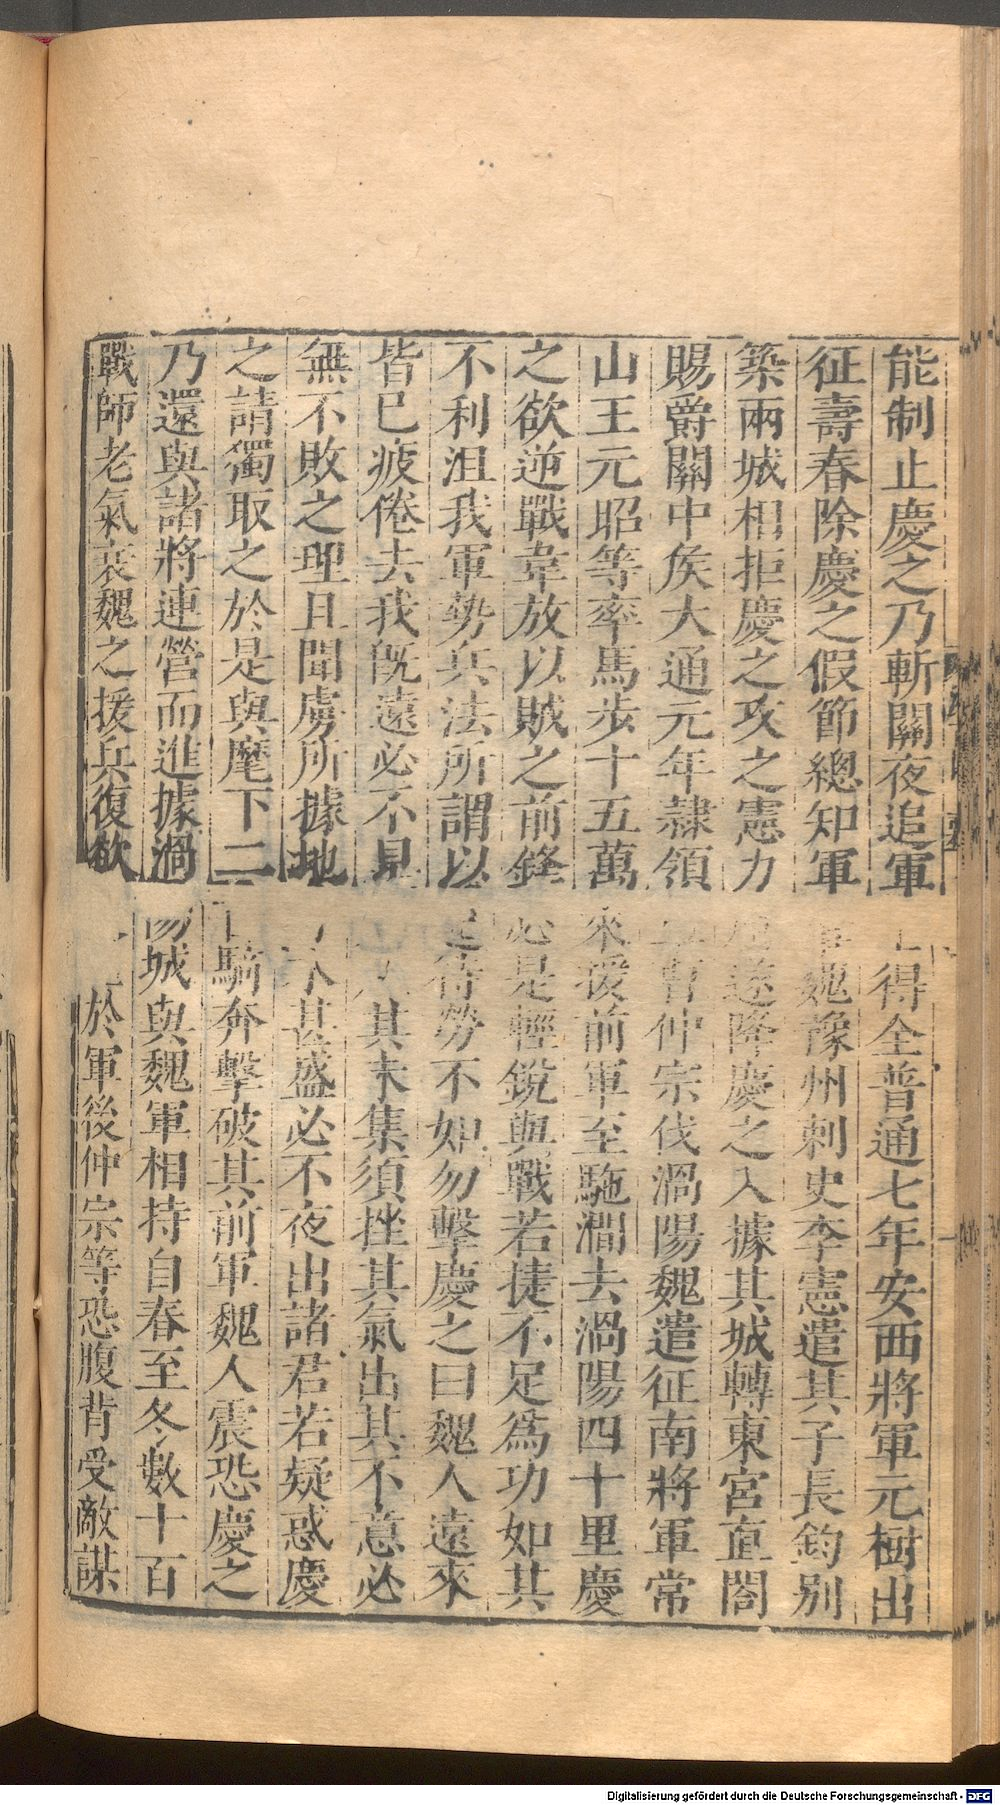 能制止慶之乃斬關夜追軍士得全普通七年安西將軍元樹出
征壽春除慶之假節總知軍事魏豫州刺史李憲遣其子長鈞別
築兩城相拒慶之攻之憲力屈遂降慶之入據其城轉東宮直閤
賜爵關中侯大通元年隸領軍曹仲宗伐渦陽魏遣征南將軍常
山王元昭等率馬步十五萬來援前軍至駞澗去渦陽四十里慶
之欲逆戰韋放以賊之前鋒必是輕銳與戰若捷不足爲功如其
不利沮我軍勢兵法所謂以逸待勞不如勿擊慶之曰魏人遠來
皆已疲倦去我旣遠必不見 其未集須挫其氣出其不意必
無不敗之理且聞虜所據地 木甚盛必不夜出諸君若疑惑慶
之請獨取之於是與麾下二百騎奔擊破其前軍魏人震恐慶之
乃還與諸將連營而進據渦陽城與魏軍相持自春至冬數十百
戰師老氣衰魏之援兵復欲 於軍後仲宗等恐腹背受敵謀
Digitalisierung gefördert durch die Deutsche Forschungsgemeinschaft - DFG